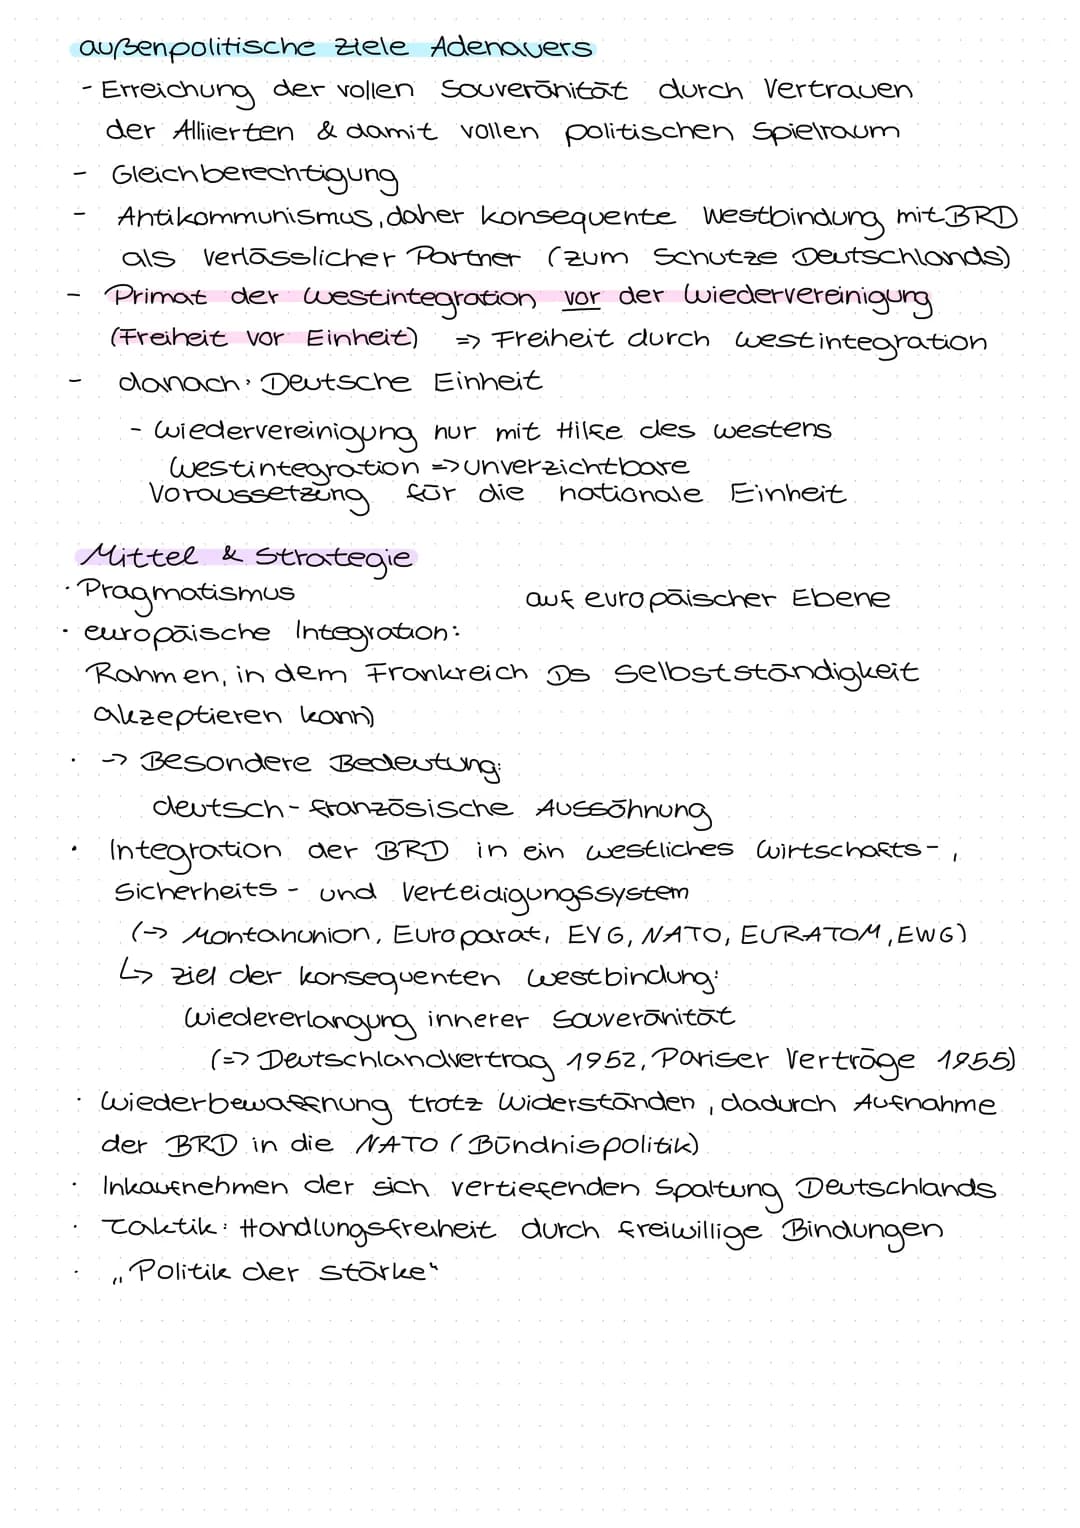 außenpolitische Ziele Adenauers
- Erreichung der vollen Souveränität durch Vertrauen
der Alliierten & damit vollen politischen Spielraum
- Gleichberechtigung
- Antikommunismus, daher konsequente Westbindung mit BRD
als verlässlicher Partner (zum Schutze Deutschlands)
- Primat der Westintegration vor der Wiedervereinigung
(Freiheit vor Einheit) => Freiheit durch Westintegration
- danach: Deutsche Einheit
- Wiedervereinigung nur mit Hilfe des Westens
Westintegration => unverzichtbare
Voraussetzung für die nationale Einheit
Mittel & Strategie
· Pragmatismus
auf europäischer Ebene
· europäische Integration:
Rahmen, in dem Frankreich Ds Selbstständigkeit
akzeptieren kann)
· -> Besondere Bedeutung:
deutsch-französische Aussöhnung
· Integration der BRD in ein westliches Wirtschafts-,
Sicherheits- und Verteidigungssystem
(-> Montanunion, Europarat, EVG, NATO, EURATOM, EWG)
↳ Ziel der konsequenten Westbindung:
Wiedererlangung innerer Souveränität
(=> Deutschlandvertrag 1952, Pariser Verträge 1955)
· Wiederbewaffnung trotz Widerständen, dadurch Aufnahme
der BRD in die NATO (Bündnispolitik)
· Inkaufnehmen der sich vertiefenden Spaltung Deutschlands
· Taktik: Handlungsfreiheit durch freiwillige Bindungen
· „Politik der Stärke"